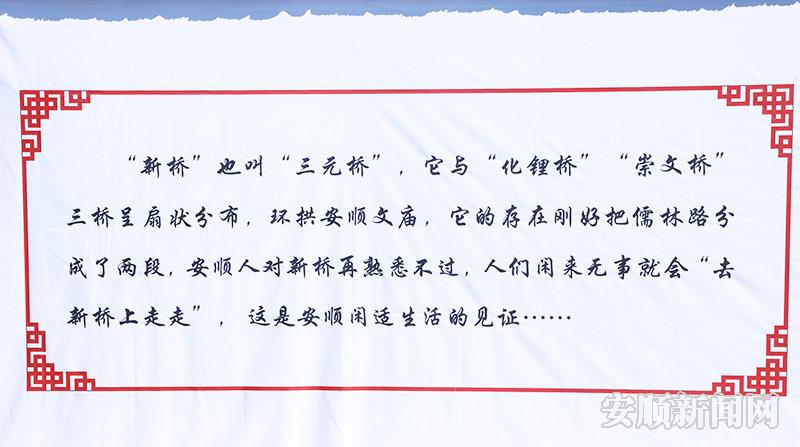 “新桥”也叫“三元桥”，它与“化鲤桥”“崇文桥”
三桥呈扇状分布，环拱安顺文庙，它的存在刚好把儒林路分
成了两段，安顺人对新桥再熟悉不过，人们闲来无事就会“去
新桥上走走”，这是安顺闲适生活的见证……
安顺新闻网